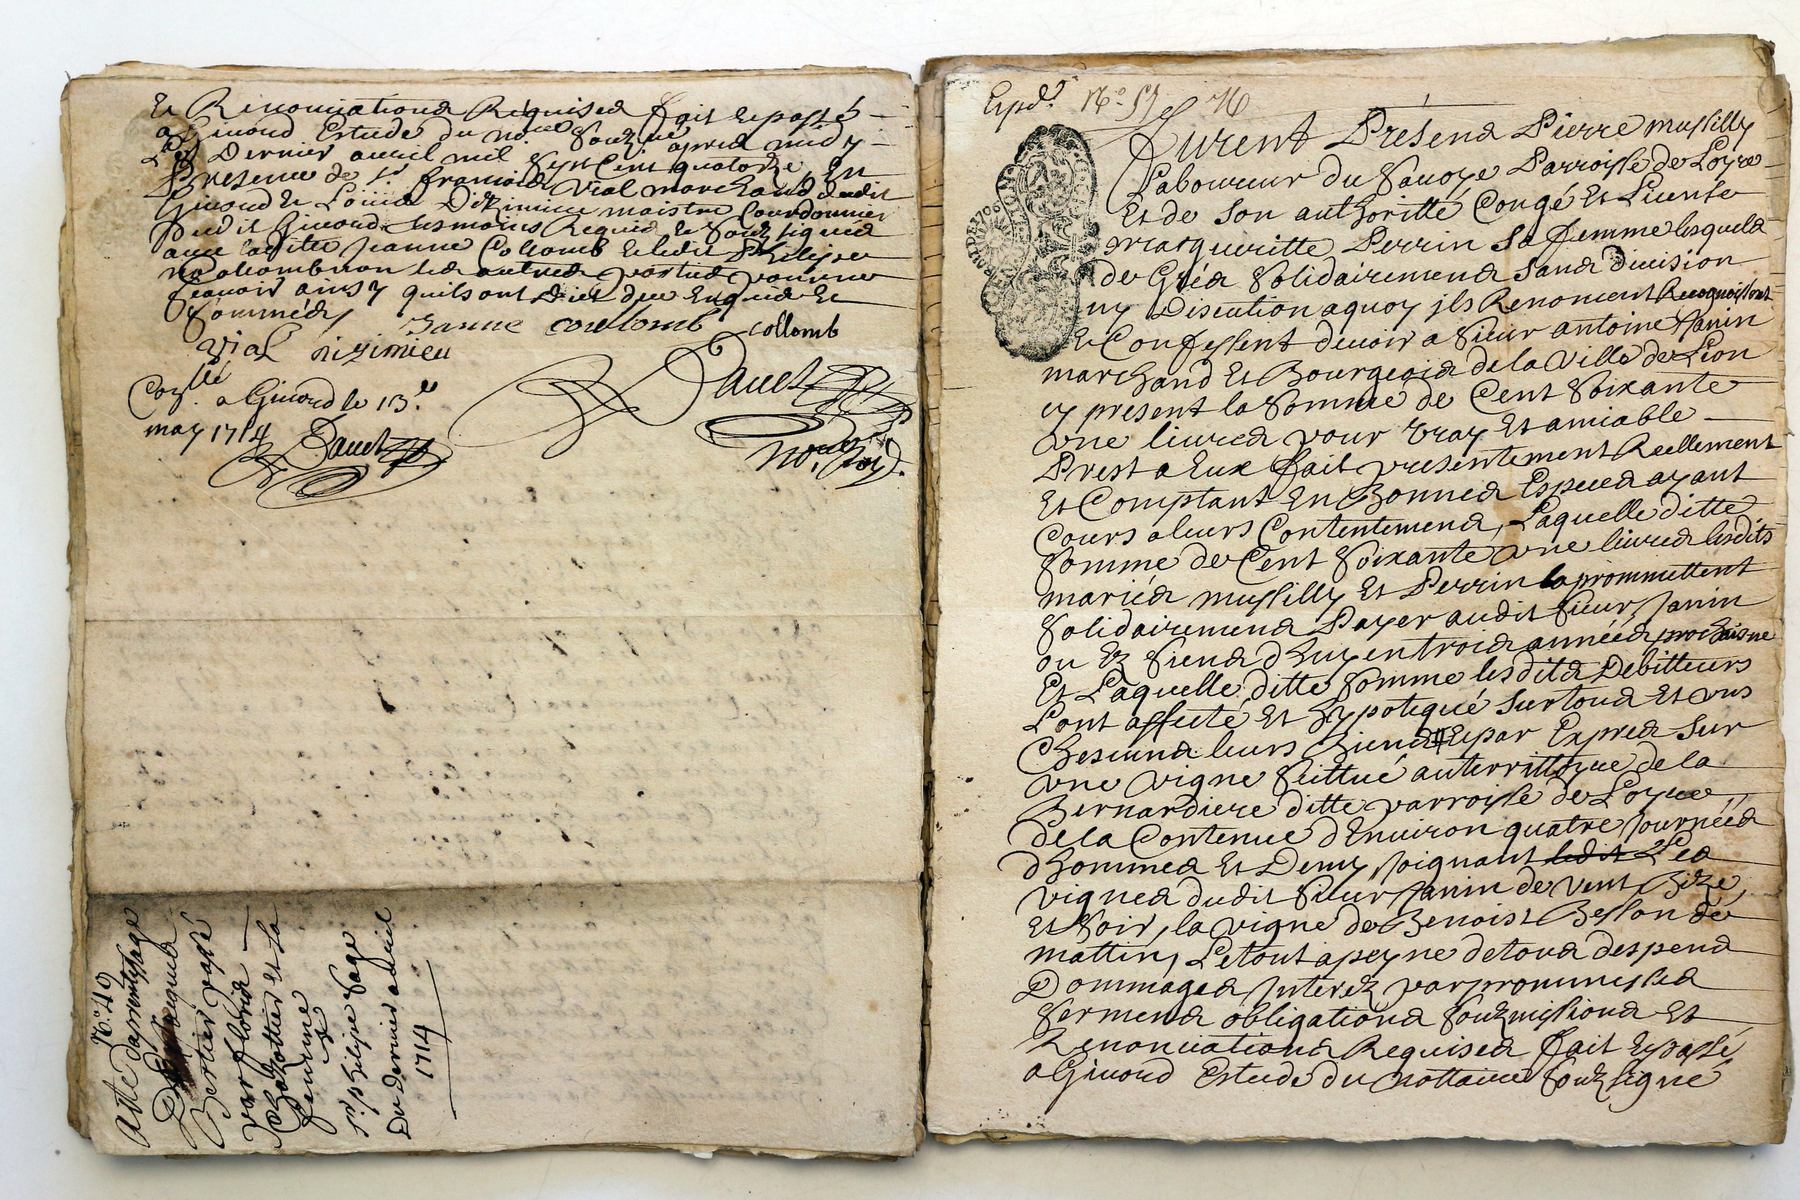 Et Renonciations Requises fait et passé
a Givord Estude du no.re soubz.né apres midy
Le Dernier avril mil sept Cent quatorze, En
Presence de sr francois vial marchand dudit
Givord et Louis Dizimieu maistre Courdonnier
dudit Givord tesmoins Requis et soubzsignes
avec laditte Jeanne Collomb et ledit Philipe
non les autres parties pour ne
scavoir ainsy quils ont Dict de ce Enquis et
sommés
Janne coulomb
collomb
vial dizimieu
Con.llé a Givord le 13.e
may 1714
No.re Roy.
N.o 49
Atte
Bertier passé
par
femme
a
sr. philipe
Du dernier avril
1714
Exped.
furent Presens Pierre mussilly
Laboureur du Parroisse de Loyre
Et de son authoritté Congé Et Licente
margueritte Perrin sa femme lesquels
de Grés solidairement sans division
ny Discution a quoy ils Renoncent Recognoissent
Et Confessent devoir a sieur antoine Janin
marchand Et Bourgeois de la ville de Lion
cy present la somme de Cent soixante
une livres pour vray Et amiable
Prest a Eux fait presentement Reellement
Et Comptant En Bonnes Especes ayant
Cours a leurs Contentement, Laquelle ditte
somme de Cent soixante une livres lesdits
mariés mussilly Et Perrin la prommettent
solidairement Payer audit sieur Janin
ou Es siens d'huy en trois années prochaisne
Et Laquelle ditte somme lesdits Debitteurs
Lont affecté Et hypotequé sur tous Et uns
Chescuns leurs Biens Et par Expres sur
une vigne scittué au territtoyre de la
Bernardiere ditte parroisse de Loyre,
de la Contenue d'Environ quatre Journées
d'hommes Et Demy, Joignant ledit Les
vignes dudit sieur Janin de vent Bize,
Et soir, la vigne de Benoist Besson de
mattin, Le tout a peyne de tous despens
Dommages Interetz par prommesses
serments obligations soubzmissions Et
Renonciations Requises fait Et passé
a Givord Estude du nottaire soubzsigné